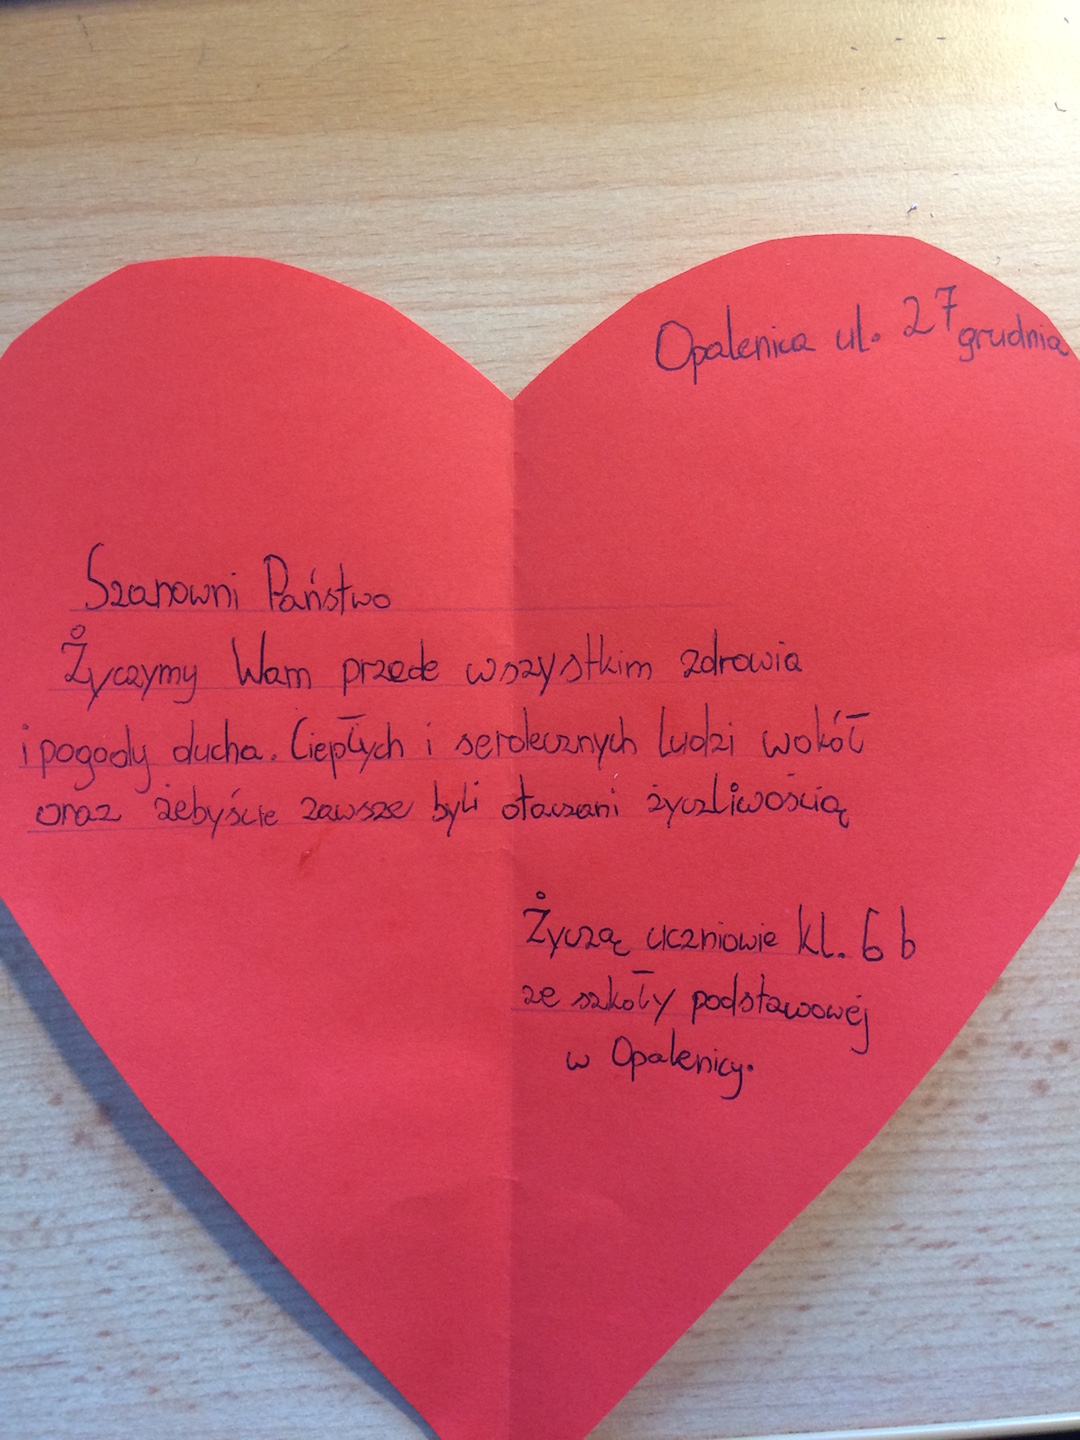 Opalenica ul. 27 grudnia
Szanowni Państwo
Życzymy Wam przede wszystkim zdrowia
i pogody ducha. Ciepłych i serdecznych ludzi wokół
oraz żebyście zawsze byli otaczani życzliwością
Życzą uczniowie kl. 6 b
ze szkoły podstawowej
w Opalenicy.